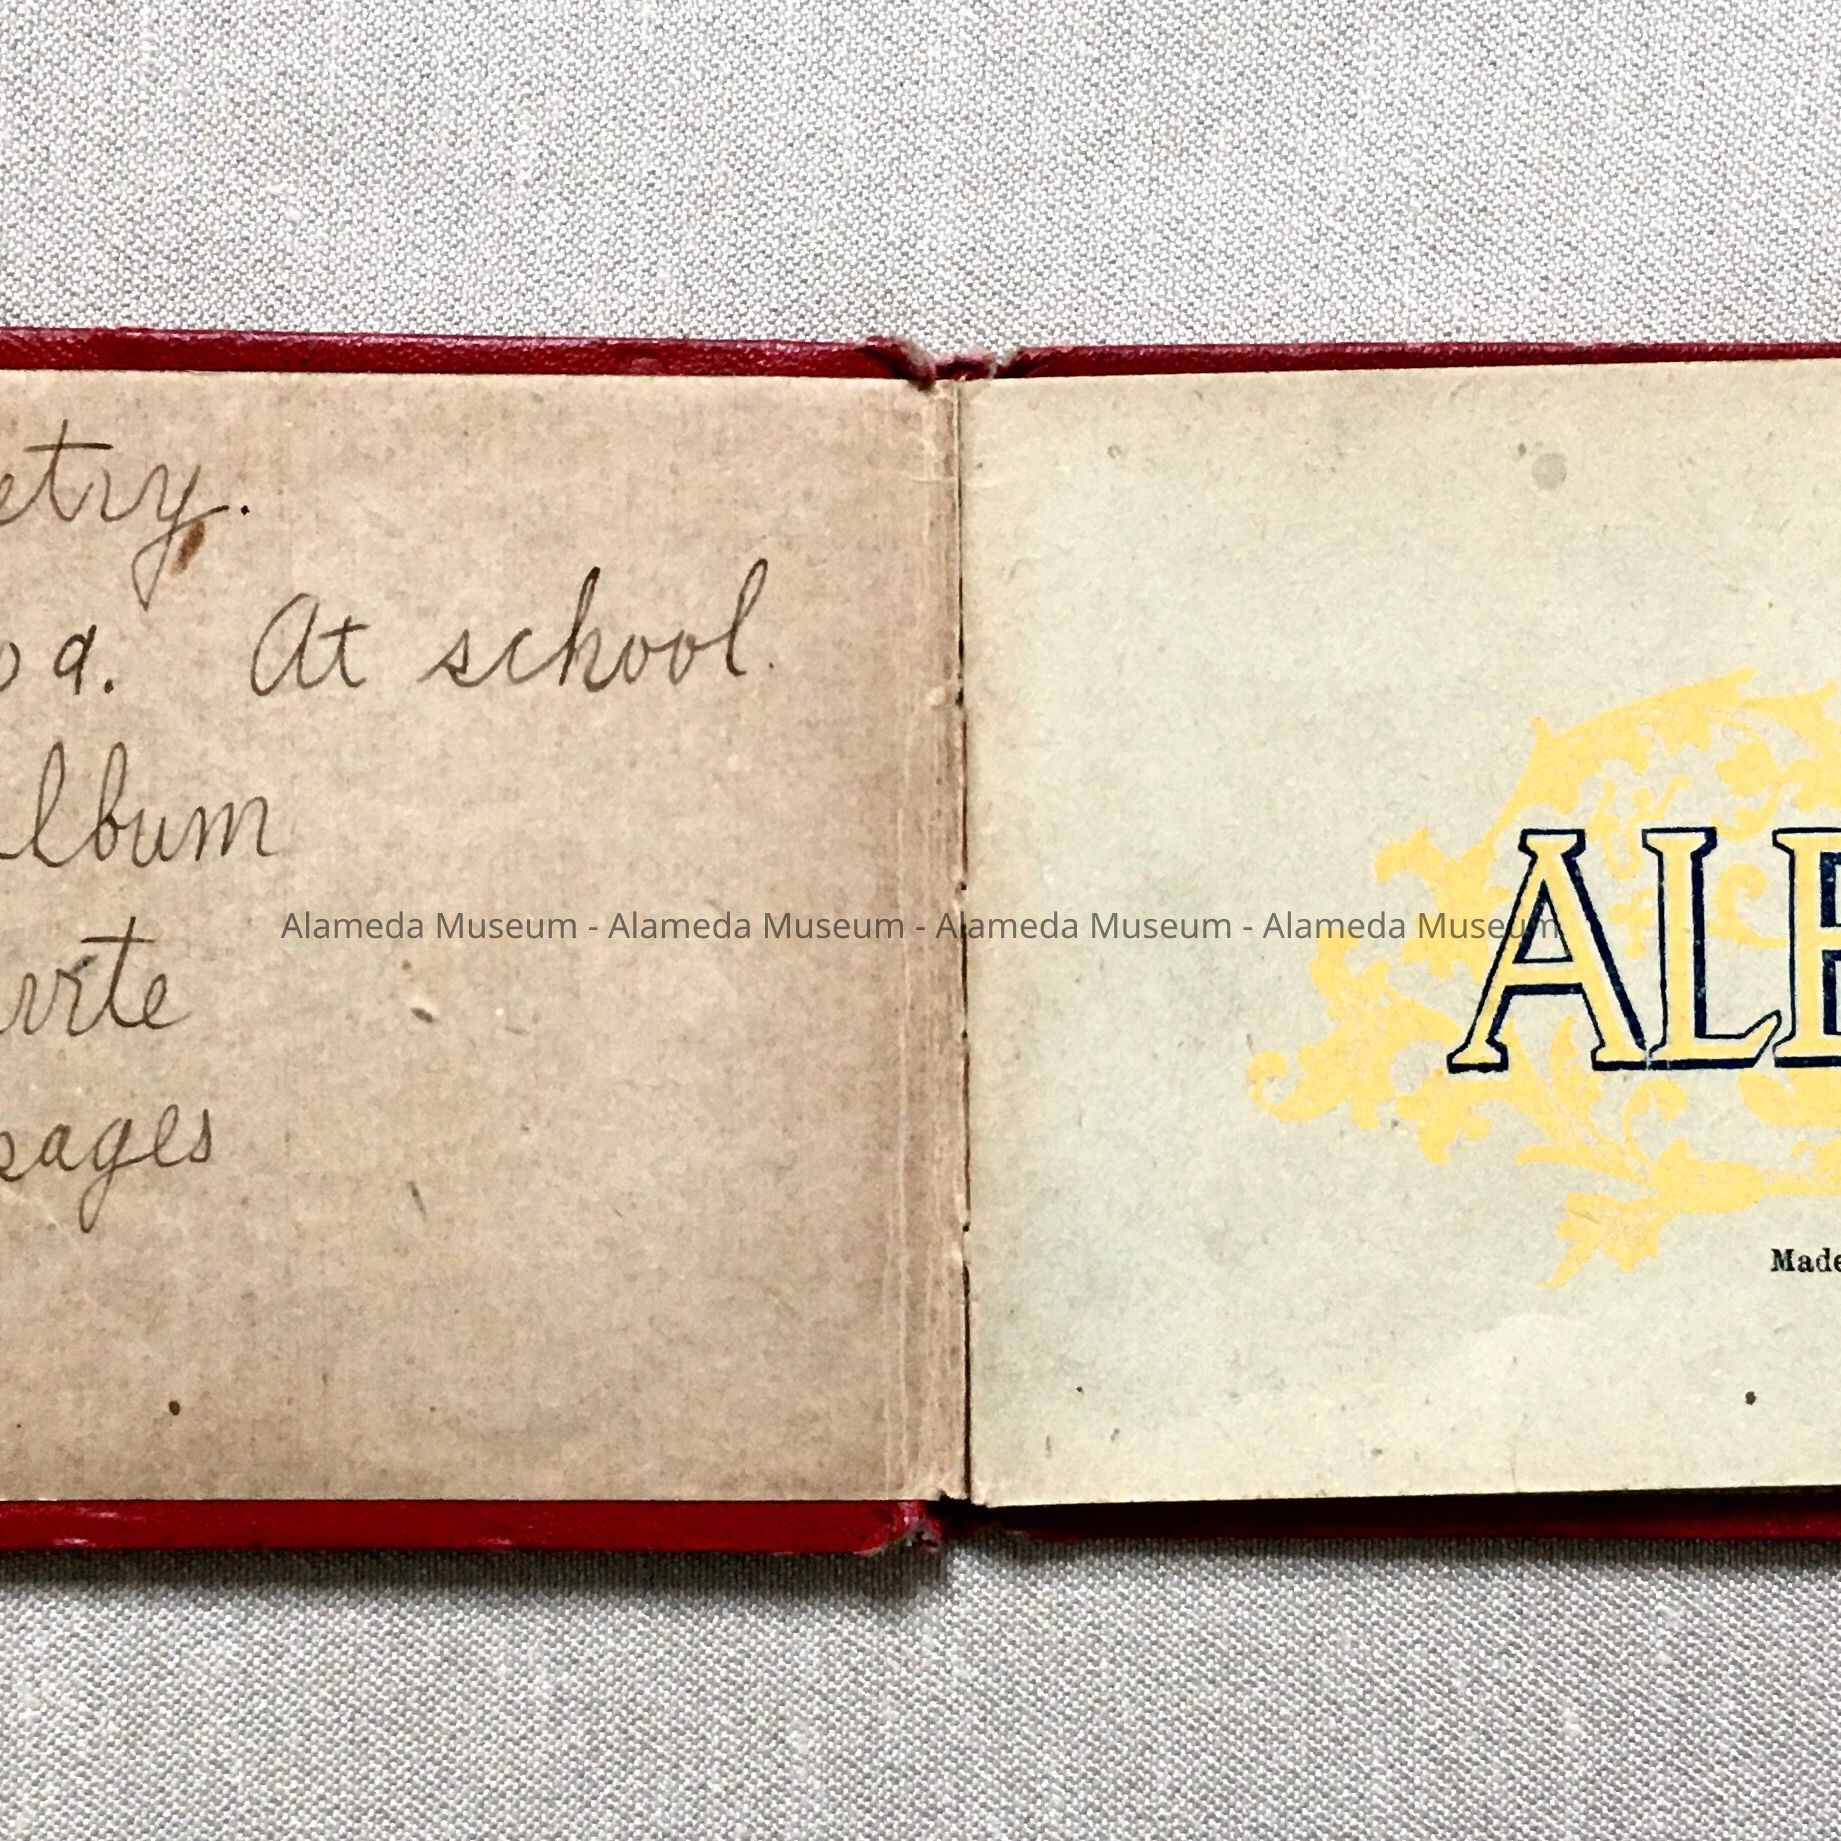 etry.
oa. At school.
lbum
write
pages
Alameda Museum - Alameda Museum - Alameda Museum - Alameda Museum
ALB
Made